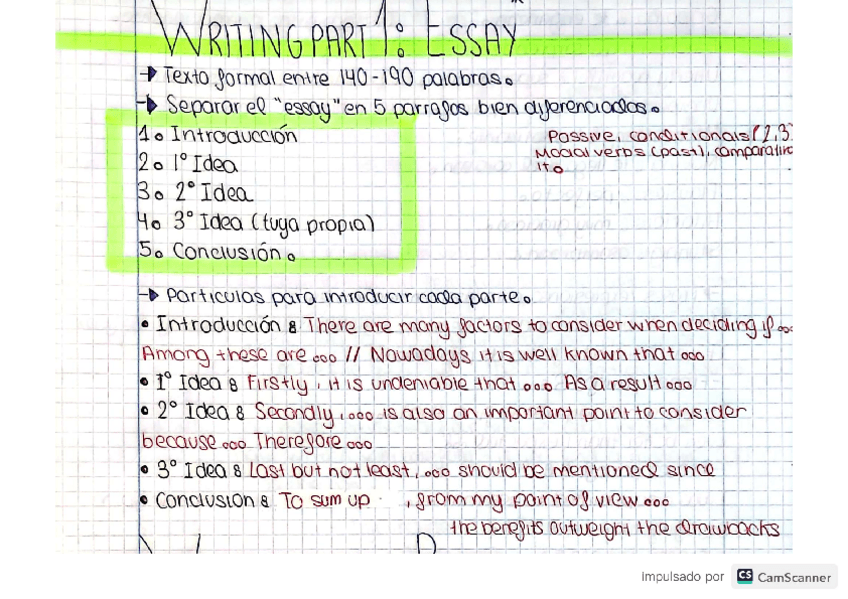 WRITING PART 1: ESSAY
→ Texto formal entre 140-190 palabras.
→ Separar el "essay" en 5 parrafos bien diferenciados.
1. Introducción
2. 1º Idea
3. 2º Idea
4. 3º Idea (tuya propia)
5. Conclusión.
Passive, conditionals (2,3
Modal verbs (past), comparativ
It.
→ Particulas para introducir cada parte.
• Introducción: There are many factors to consider when deciding if...
Among these are ... // Nowadays it is well known that ...
• 1º Idea: Firstly, it is undeniable that ... As a result ...
• 2º Idea: Secondly, ... is also an important point to consider
because ... Therefore ...
• 3º Idea: Last but not least, ... should be mentioned since
• Conclusion: To sum up , from my point of view ...
the benefits outweight the drawbacks
Impulsado por CS CamScanner